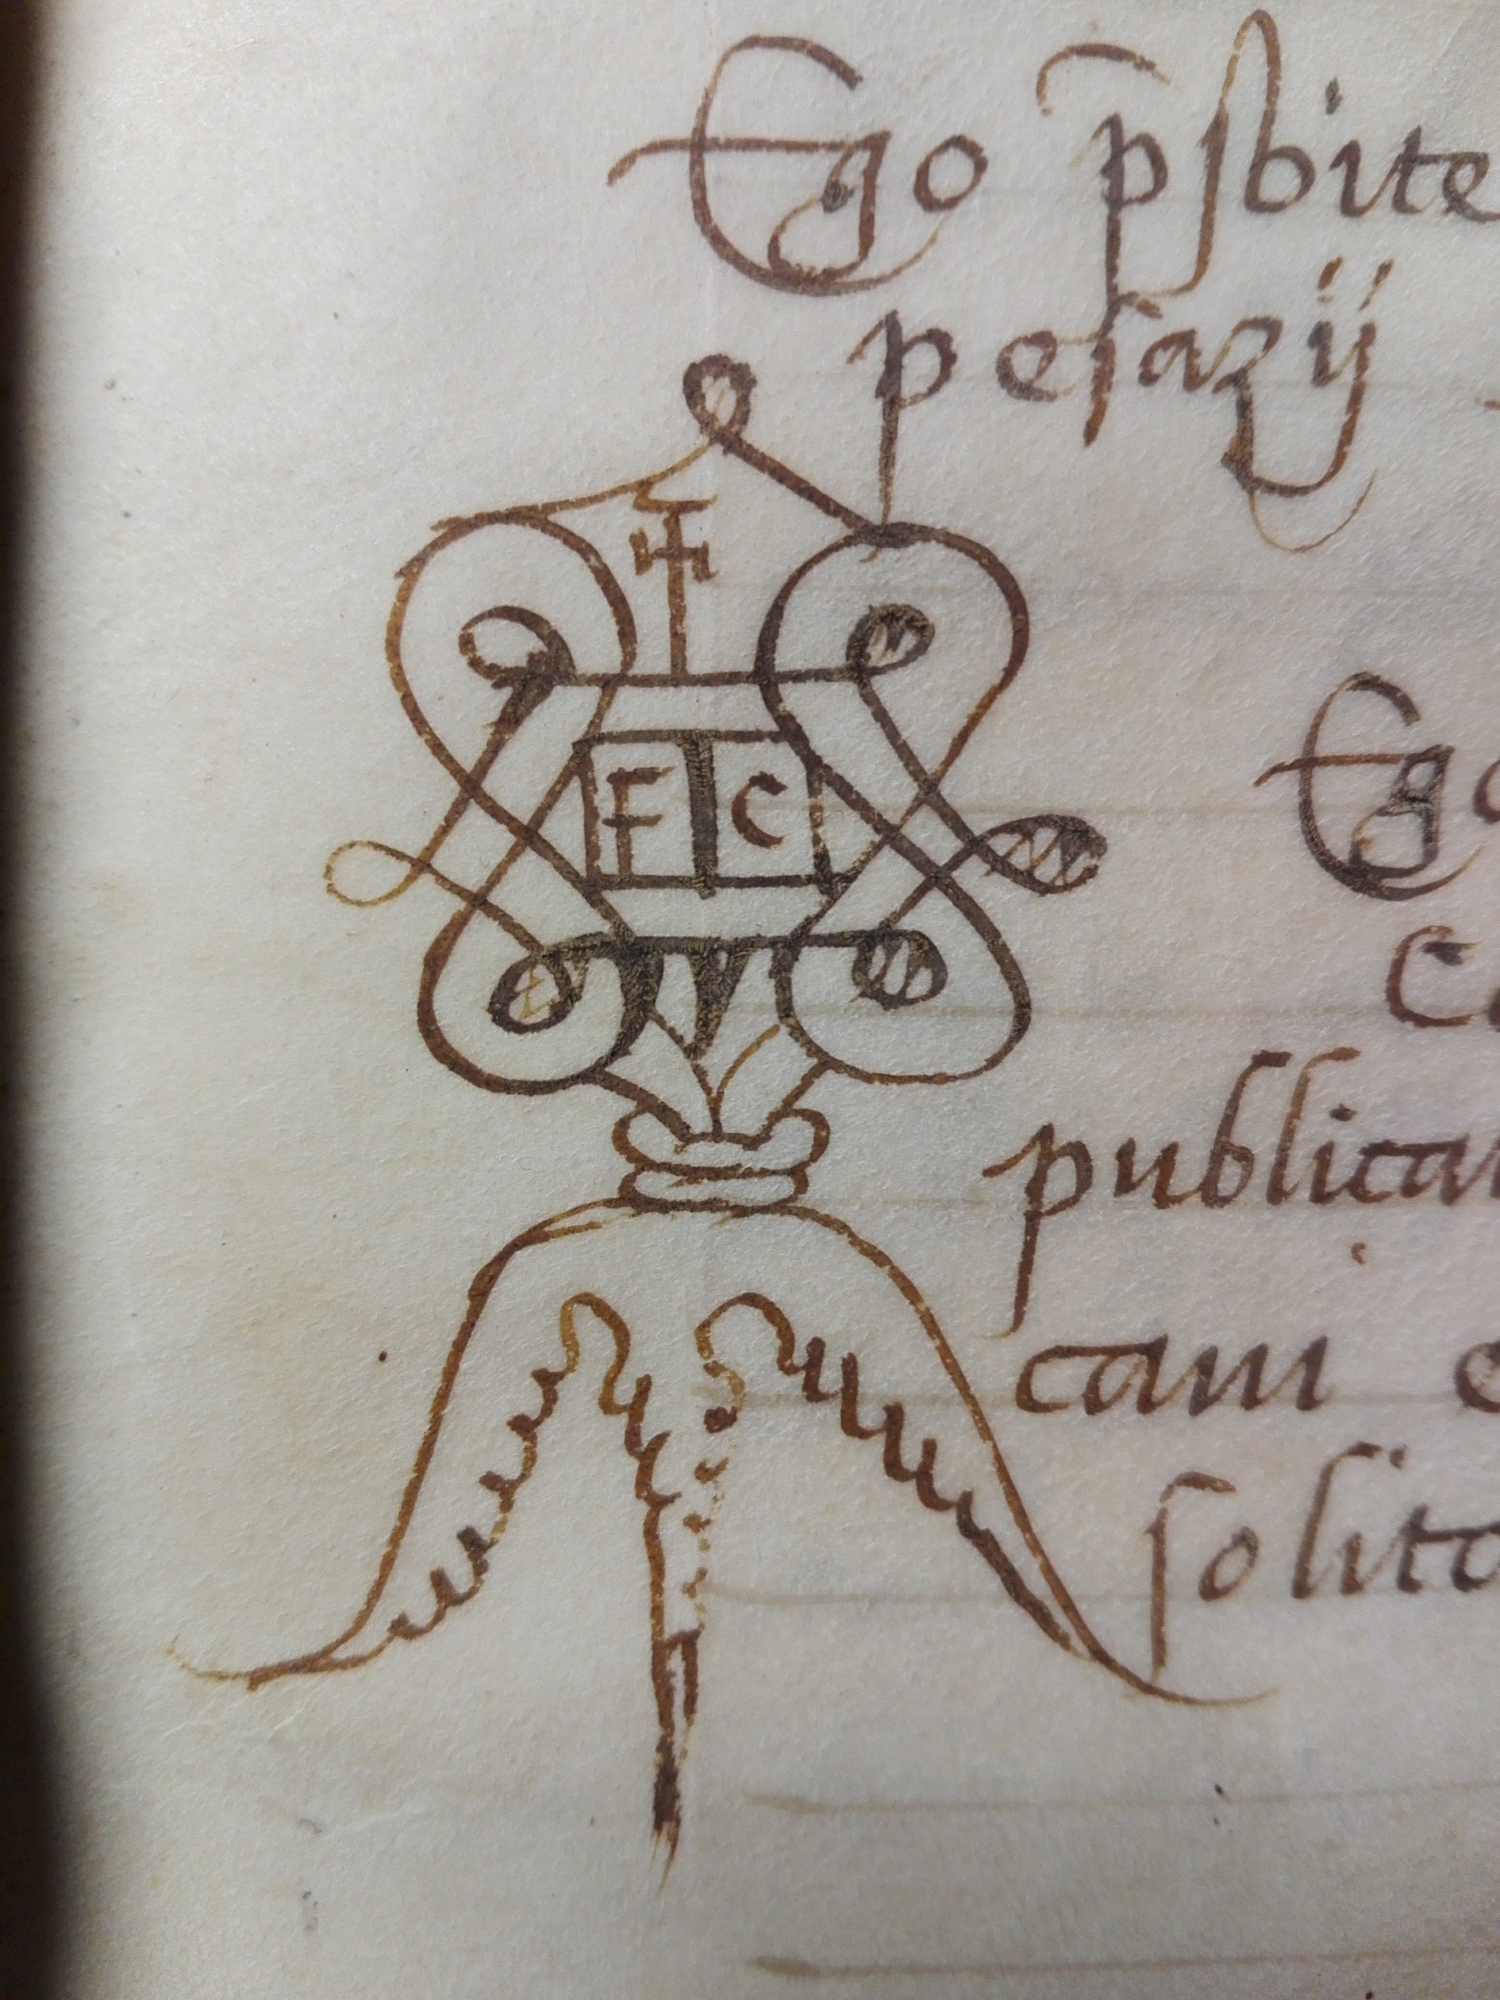 Ego p̄sbite
pesazij
F C
Ego
Ca
publicar
cani e
solita